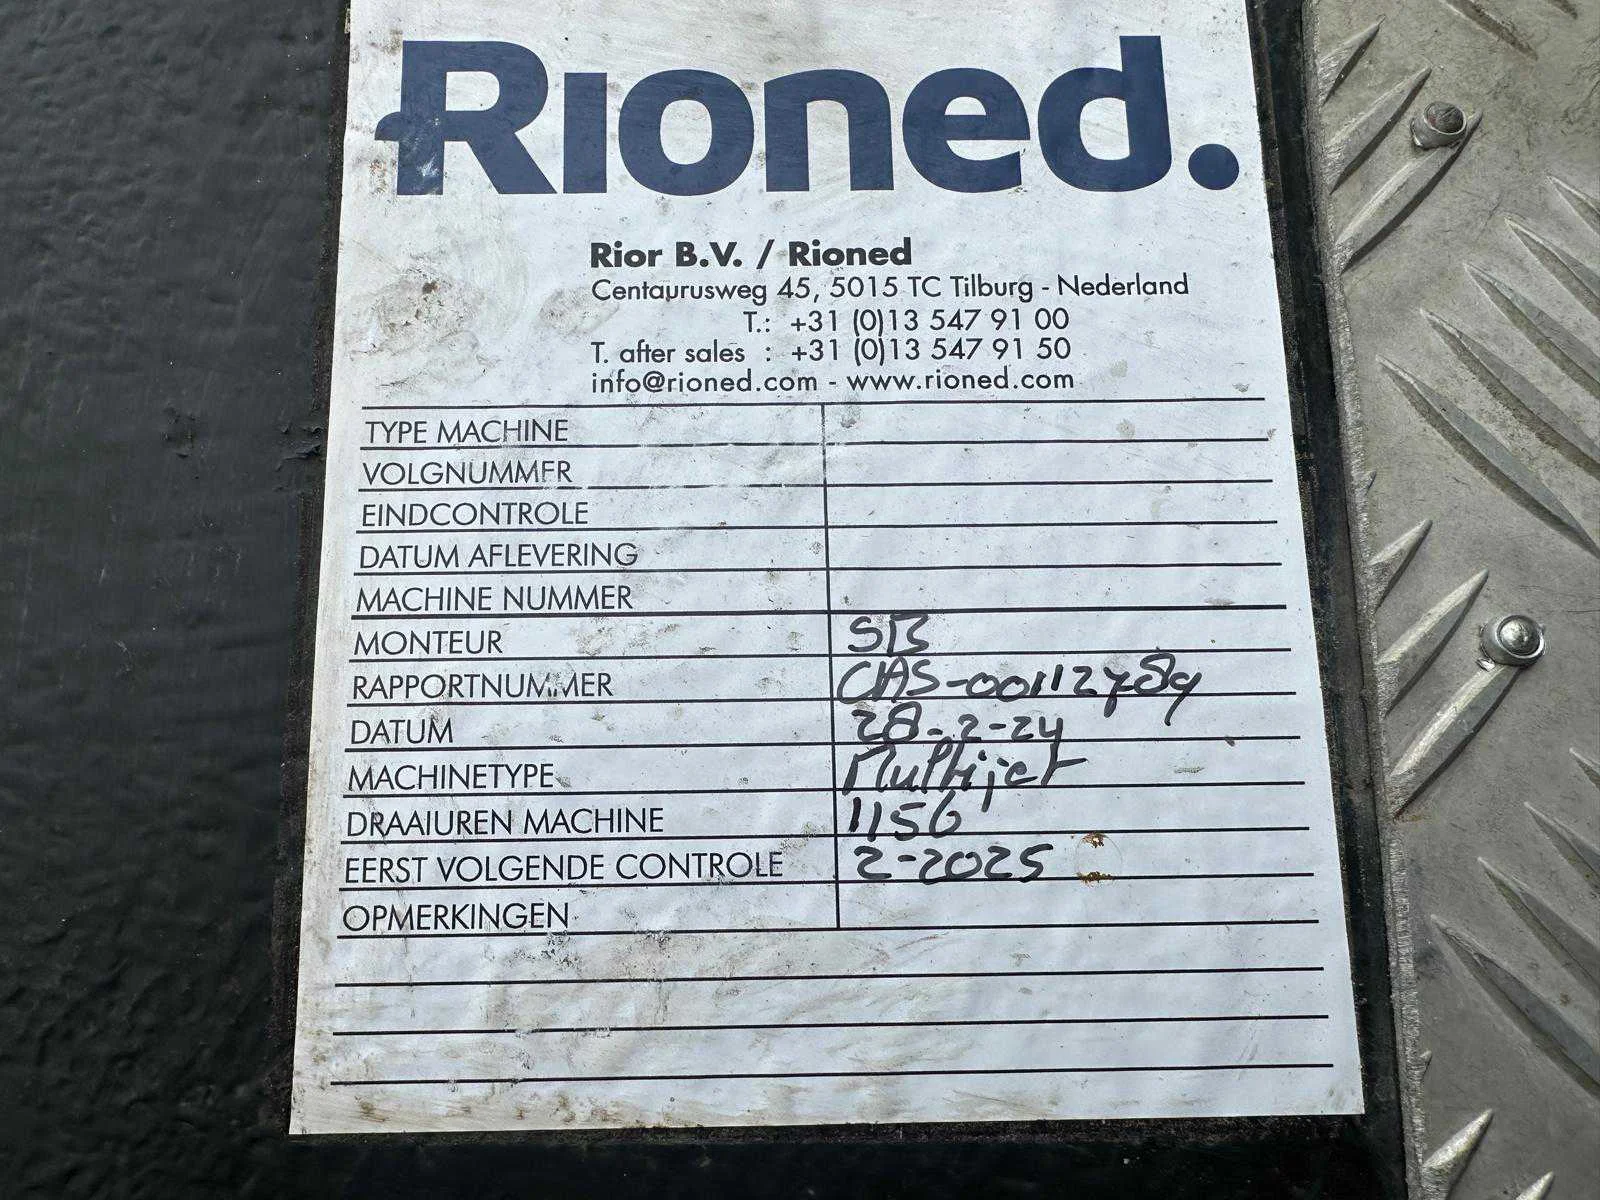 Rioned.
Rior B.V. / Rioned
Centaurusweg 45, 5015 TC Tilburg - Nederland
T.: +31 (0)13 547 91 00
T. after sales : +31 (0)13 547 91 50
info@rioned.com - www.rioned.com
TYPE MACHINE
VOLGNUMMER
EINDCONTROLE
DATUM AFLEVERING
MACHINE NUMMER
MONTEUR SB
RAPPORTNUMMER
DATUM 28-2-24
MACHINETYPE Multijet
DRAAIUREN MACHINE 1156
EERST VOLGENDE CONTROLE 2-2025
OPMERKINGEN